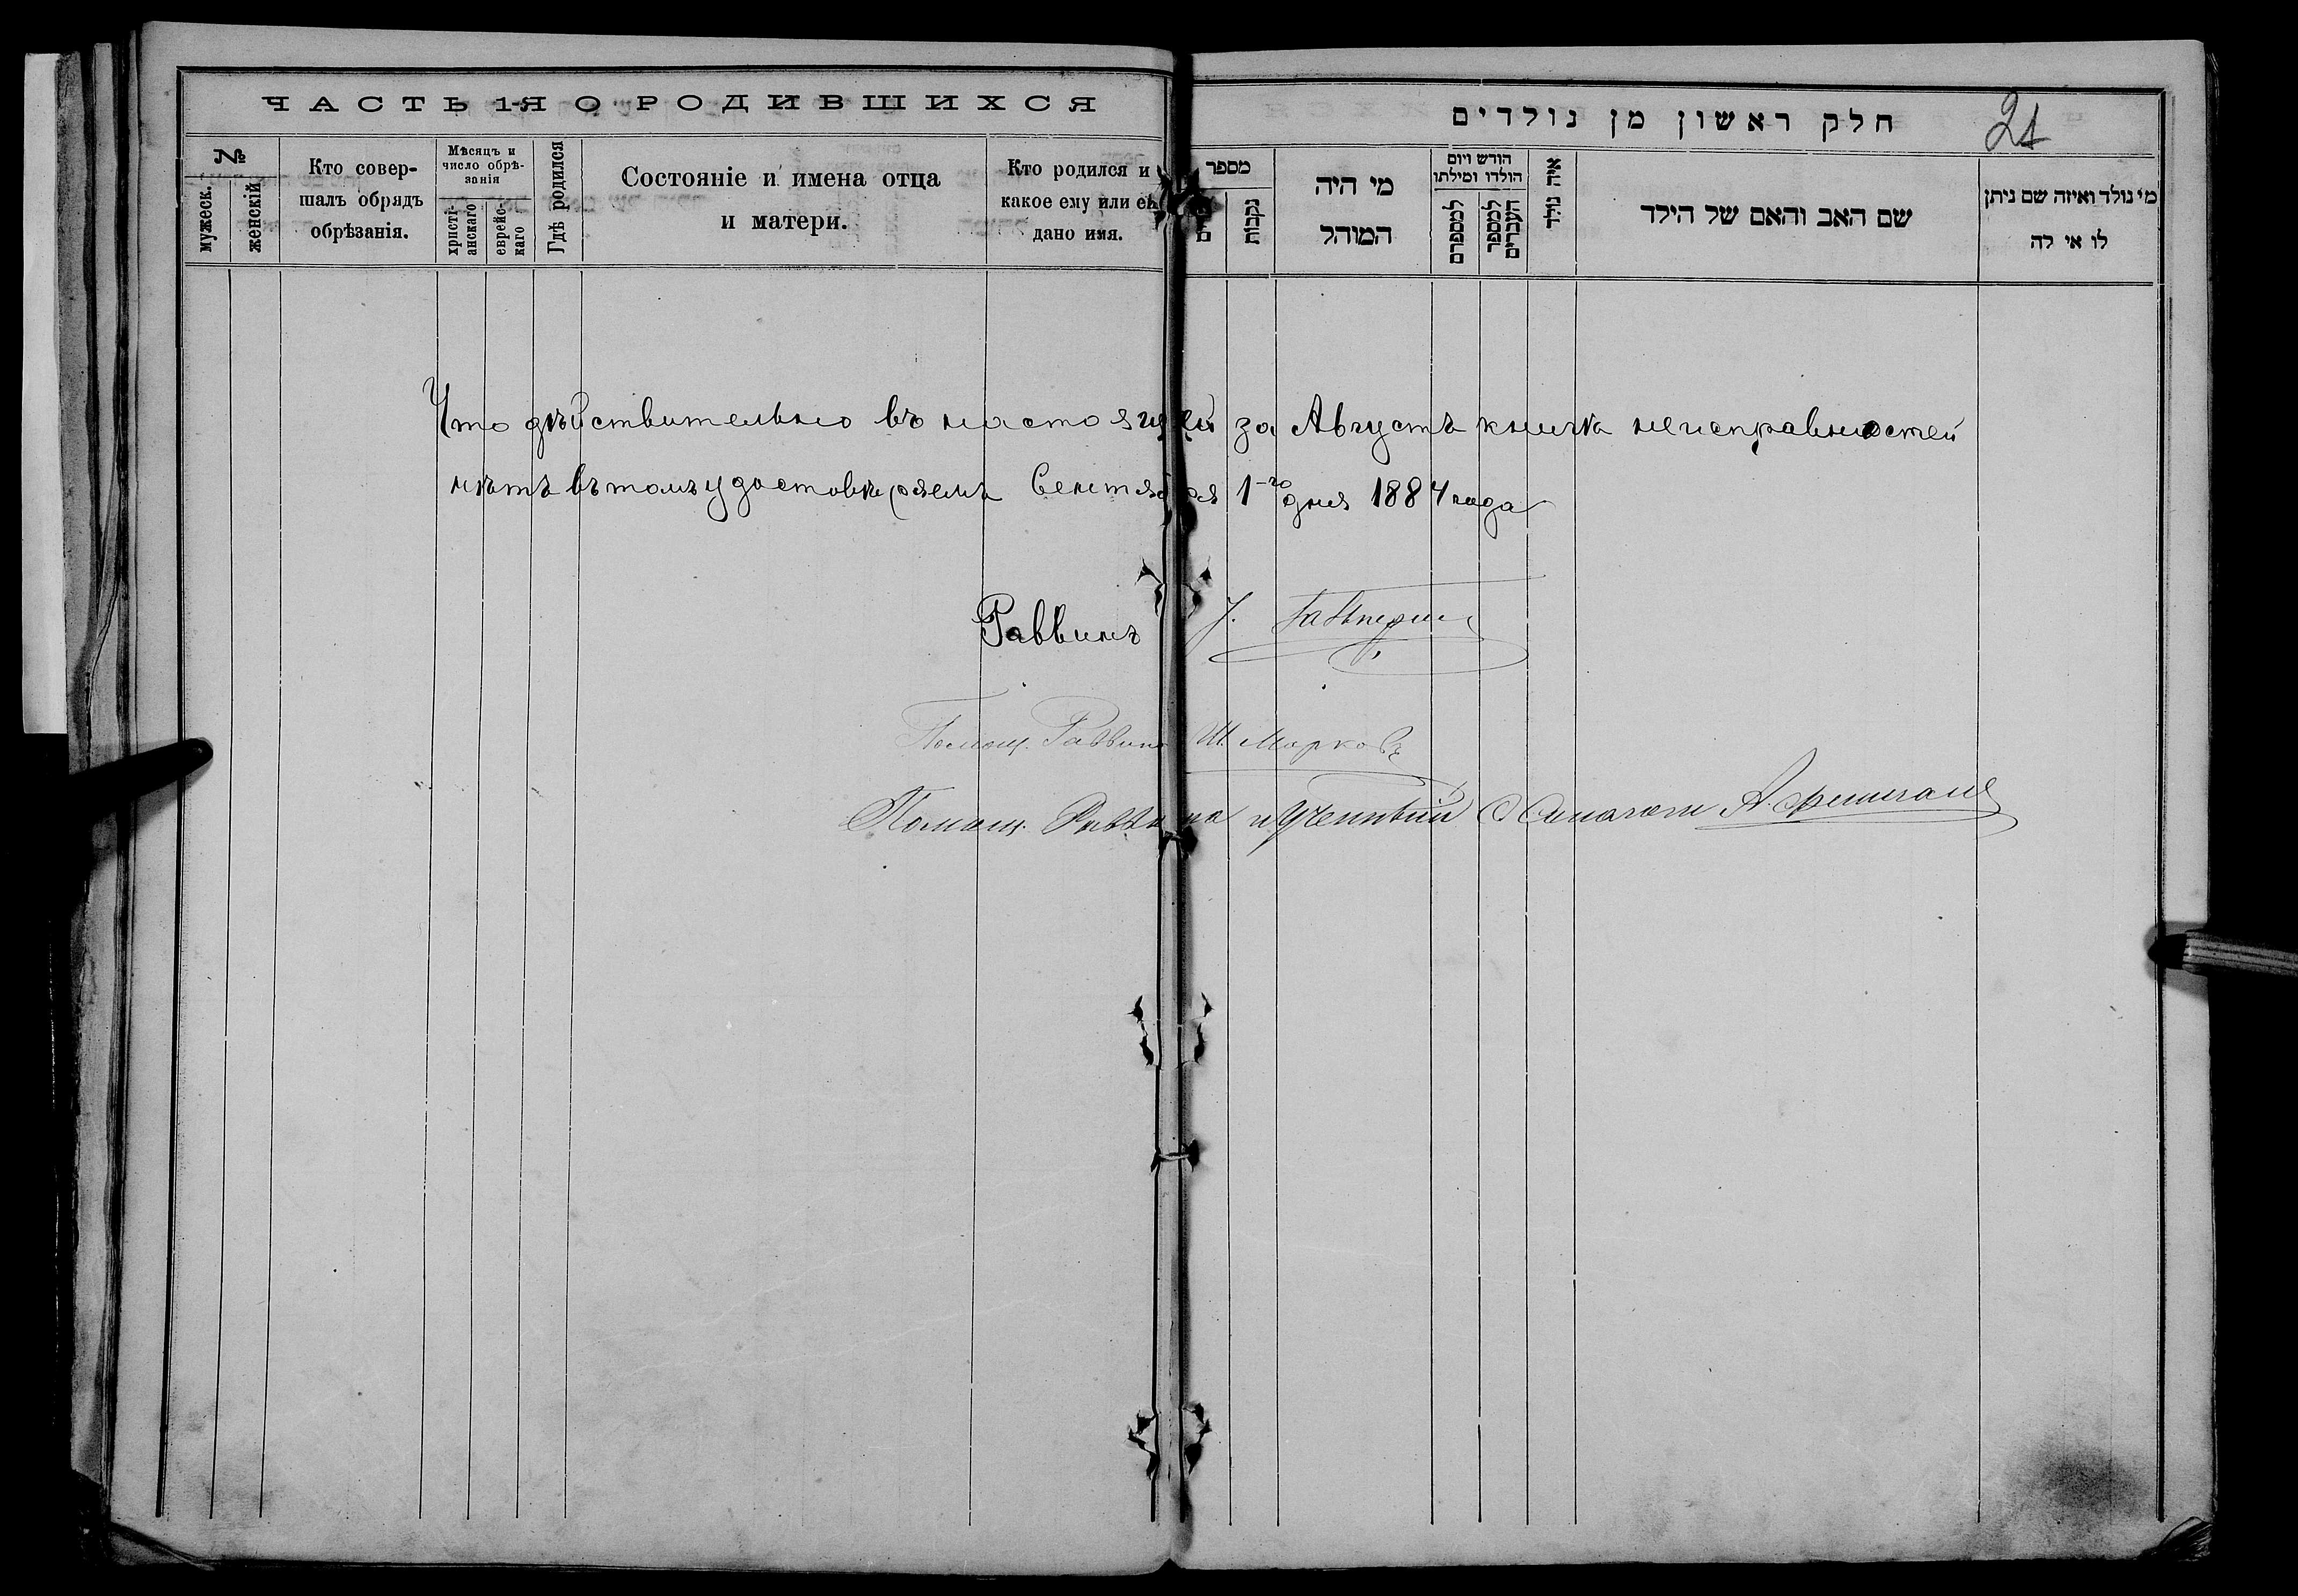 ЧАСТЬ 1-Я О РОДИВШИХСЯ
№
мужеск.
женскій
Кто совер-
шалъ обрядъ
обрѣзанія.
Мѣсяцъ и
число обрѣ-
занія
христі-
анскаго
еврейс-
каго
Гдѣ родился
Состояніе и имена отца
и матери.
Кто родился и
какое ему или ей
дано имя.
חלק ראשון מן נולדים
21
מספר
נקבות
מי היה
המוהל
הודש ויום
הולדו ומילתו
למספרם
למספר
העברים
איה נולד
שם האב והאם של הילד
מי נולד ואיזה שם ניתן
לו אי לה
Что дѣйствительно въ настоящей за Августъ книжка неисправностей
нѣтъ въ томъ удостовѣряемъ Сентября 1-го дня 1884 года
Раввинъ
Помощ. Раввина Ш. Марковъ
Помощ. Раввина и Ученный